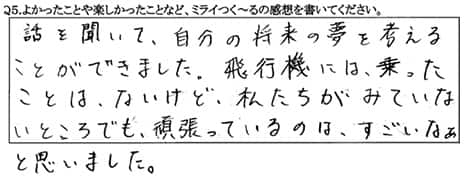 Q5.よかったことや楽しかったことなど、ミライつく～るの感想を書いてください。
話を聞いて、自分の将来の夢を考える
ことができました。飛行機には、乗った
ことは、ないけど、私たちがみていな
いところでも、頑張っているのは、すごいなぁ
と思いました。